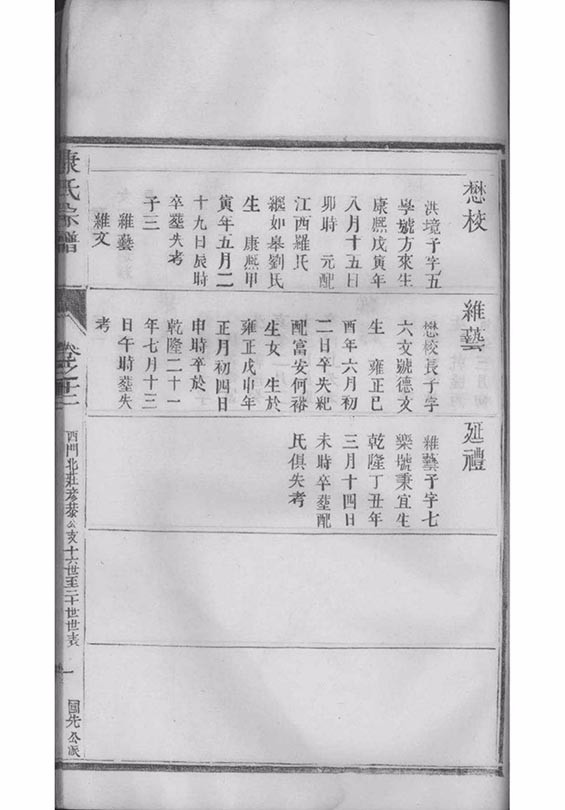 懋校
洪境子字五
學號方來生
康熙戊寅年
八月十五日
卯時 元配
江西羅氏
繼如皋劉氏
生 康熙甲
寅年五月二
十九日辰時
卒塟失考
子三
雜藝
雜文
雜藝
懋校長子字
六文號德文
生 雍正己
酉年六月初
二日卒失紀
配富安何裕
生女 生於
雍正戊申年
正月初四日
申時卒於
乾隆二十一
年七月十三
日午時塟失
考
延禮
雜藝子字七
樂號秉宜生
乾隆丁丑年
三月十四日
未時卒塟配
氏俱失考
康氏宗譜
卷之十二
西門北莊彥恭公亥十六世至二十世世表
一
國先公派